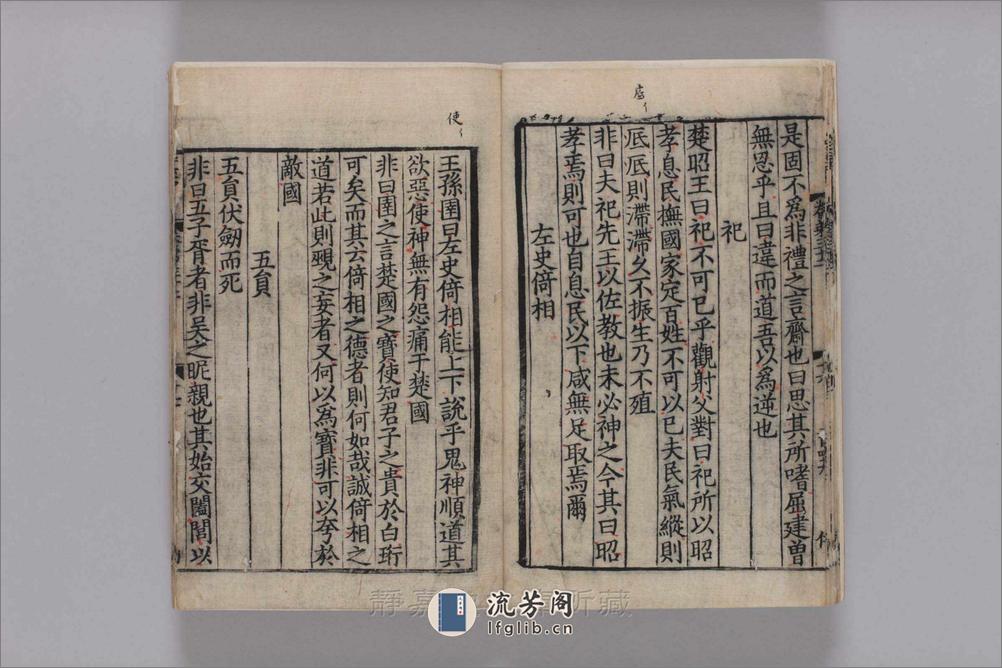 是固不爲非禮之言齋也曰思其所嗜屈建曽
無思乎且曰違而道吾以爲逆也
祀
楚昭王曰祀不可已乎觀射父對曰祀所以昭
孝息民撫國家定百姓不可以已夫民氣縱則
底底則滯滯久不振生乃不殖
非曰夫祀先王以佐教也未必神之今其曰昭
孝焉則可也自息民以下咸無足取焉爾
左史倚相
王孫圉曰左史倚相能上下說乎鬼神順道其
欲惡使神無有怨痛于楚國
非曰圉之言楚國之寶使知君子之貴於白珩
可矣而其云倚相之德者則何如哉誠倚相之
道若此則覡之妄者又何以爲寶非可以夸於
敵國
五員
五員伏劒而死
非曰五子胥者非吴之昵親也其始交闔閭以
使
靜嘉 所藏
流芳阁
lfglib.cn